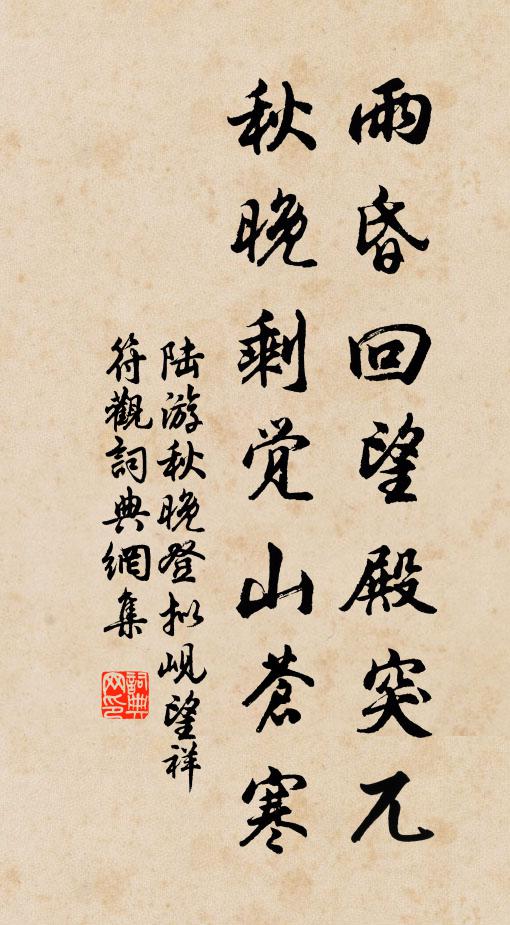 雨昏回望殿突兀
秋晚剩觉山苍寒
陆游秋晚登拟岘望祥
符觀詞典網集
詞典
网印